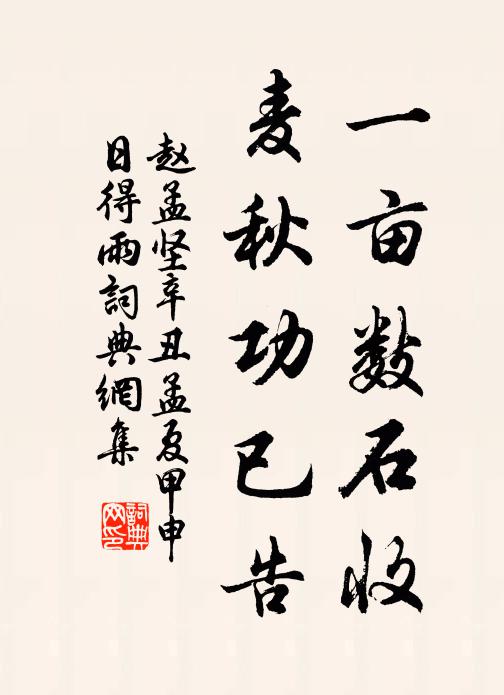 一亩数石收
麦秋功已告
赵孟坚辛丑孟夏甲申
日得雨詞典網集
詞典网印